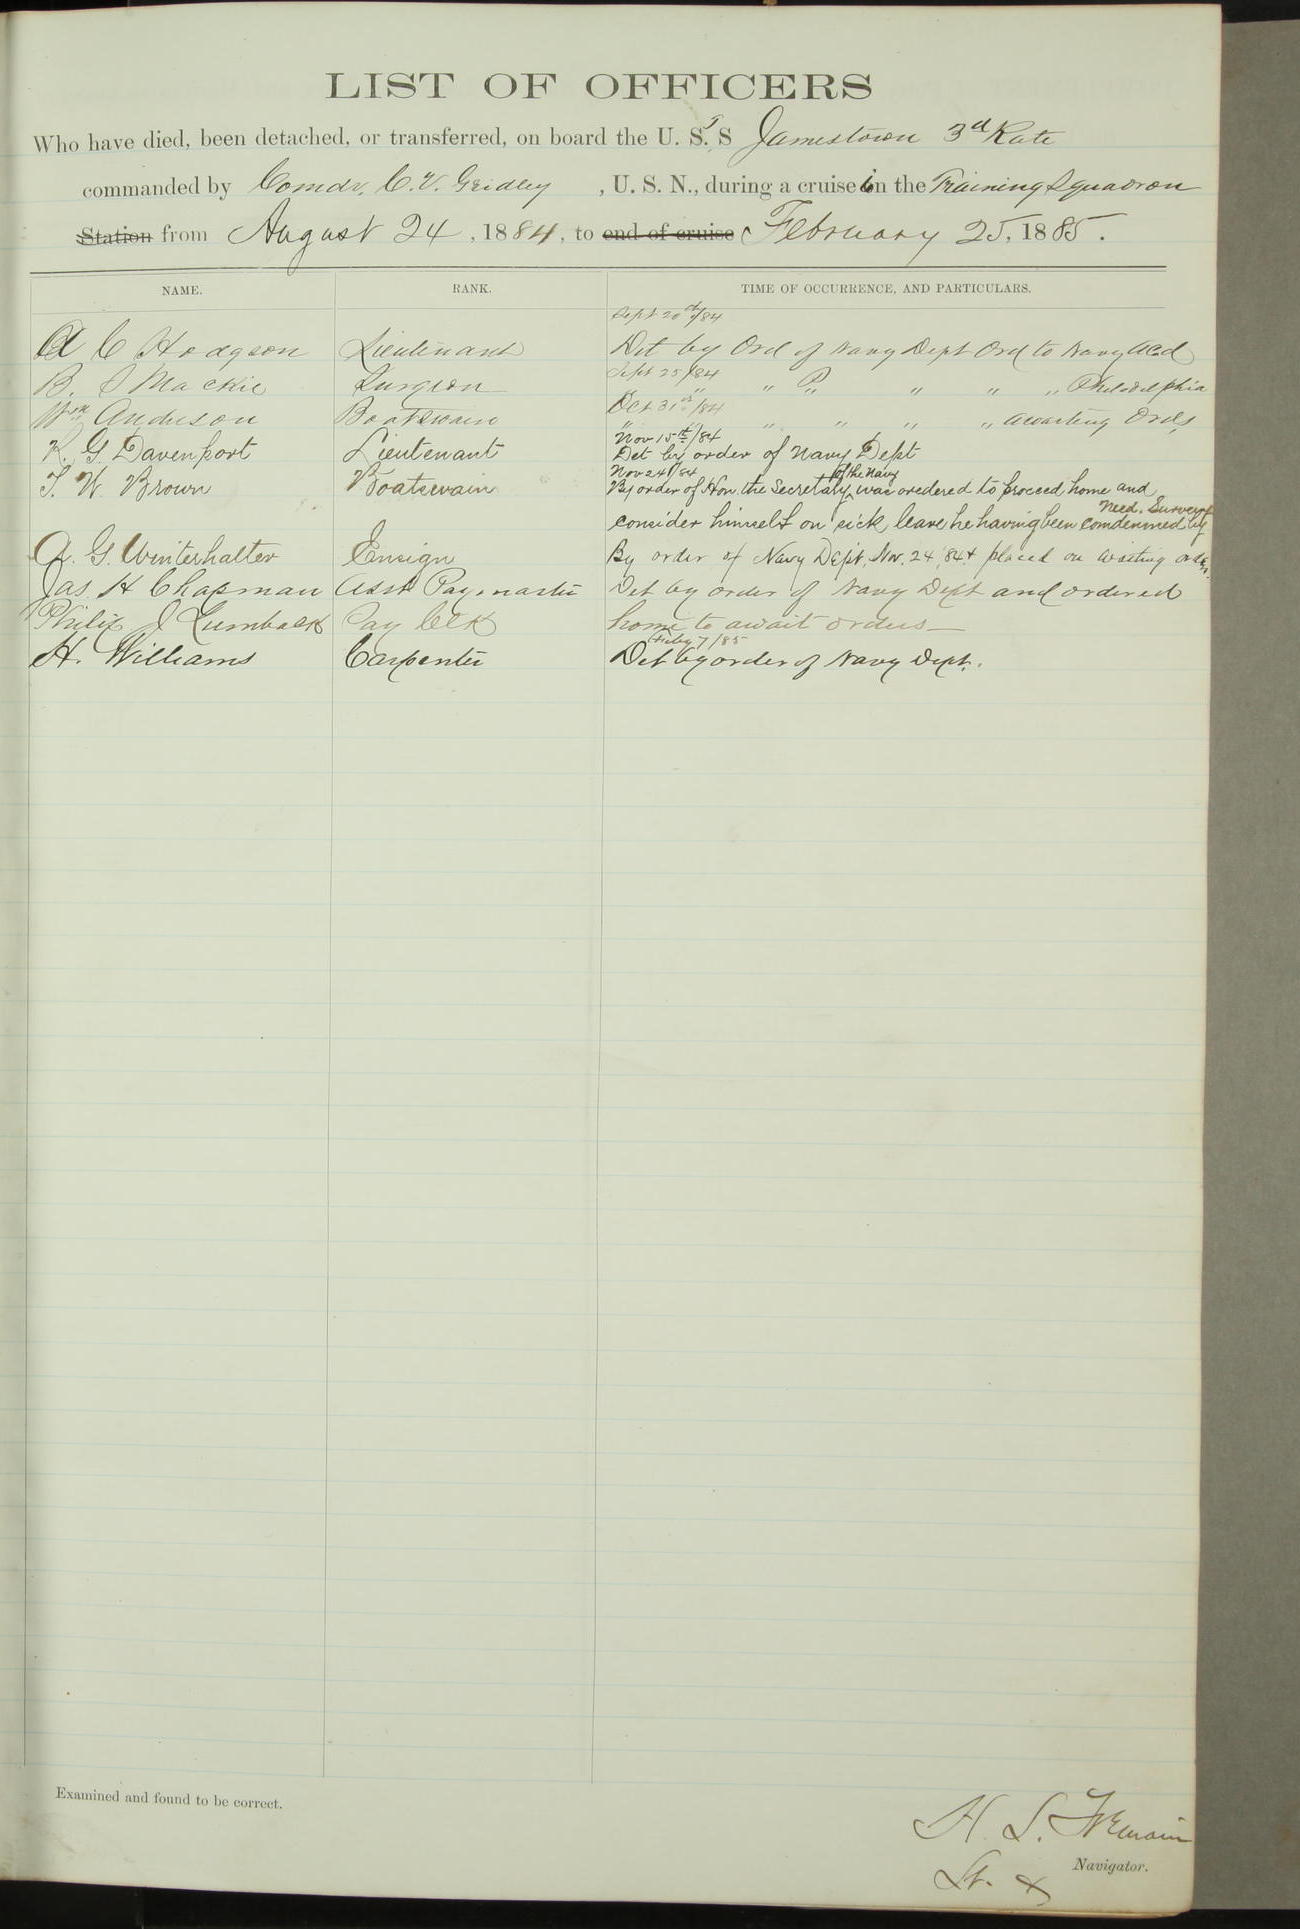 LIST OF OFFICERS
Who have died, been detached, or transferred, on board the U. S. T. S Jamestown 3d Rate
commanded by Comdr. C. V. Gridley, U. S. N., during a cruise in the Training Squadron
Station from August 24, 1884, to end of cruise February 25, 1885.
NAME. RANK. TIME OF OCCURRENCE, AND PARTICULARS.
Sept 20th/84
A C Hodgson Lieutenant Det by Ord of Navy Dept Ord to Navy Acd
Sept 25/84
B. S Mackie Surgeon " " " " " Philadelphia
Oct 31st/84
Wm Anderson Boatswain " " " " " " awaiting Ords
Nov 15th/84
R. G. Davenport Lieutenant Det by order of Navy Dept
Nov 24/84
T. W. Brown Boatswain By order of Hon. the Secretary of the Navy was oredered to proceed home and
consider himself on sick leave he having been comdemned by Med. Survey
A. G. Winterhalter Ensign By order of Navy Dept, Nov. 24 '84 & placed on waiting orders.
Jas. H Chapman Asst Paymaster Det by order of Navy Dept and ordered
Philip J Lumback Pay Clk home to await orders—
Feby 7/85
H. Williams Carpenter Det by order of Navy Dept.
Examined and found to be correct.
H. S.
Lt. &
Navigator.